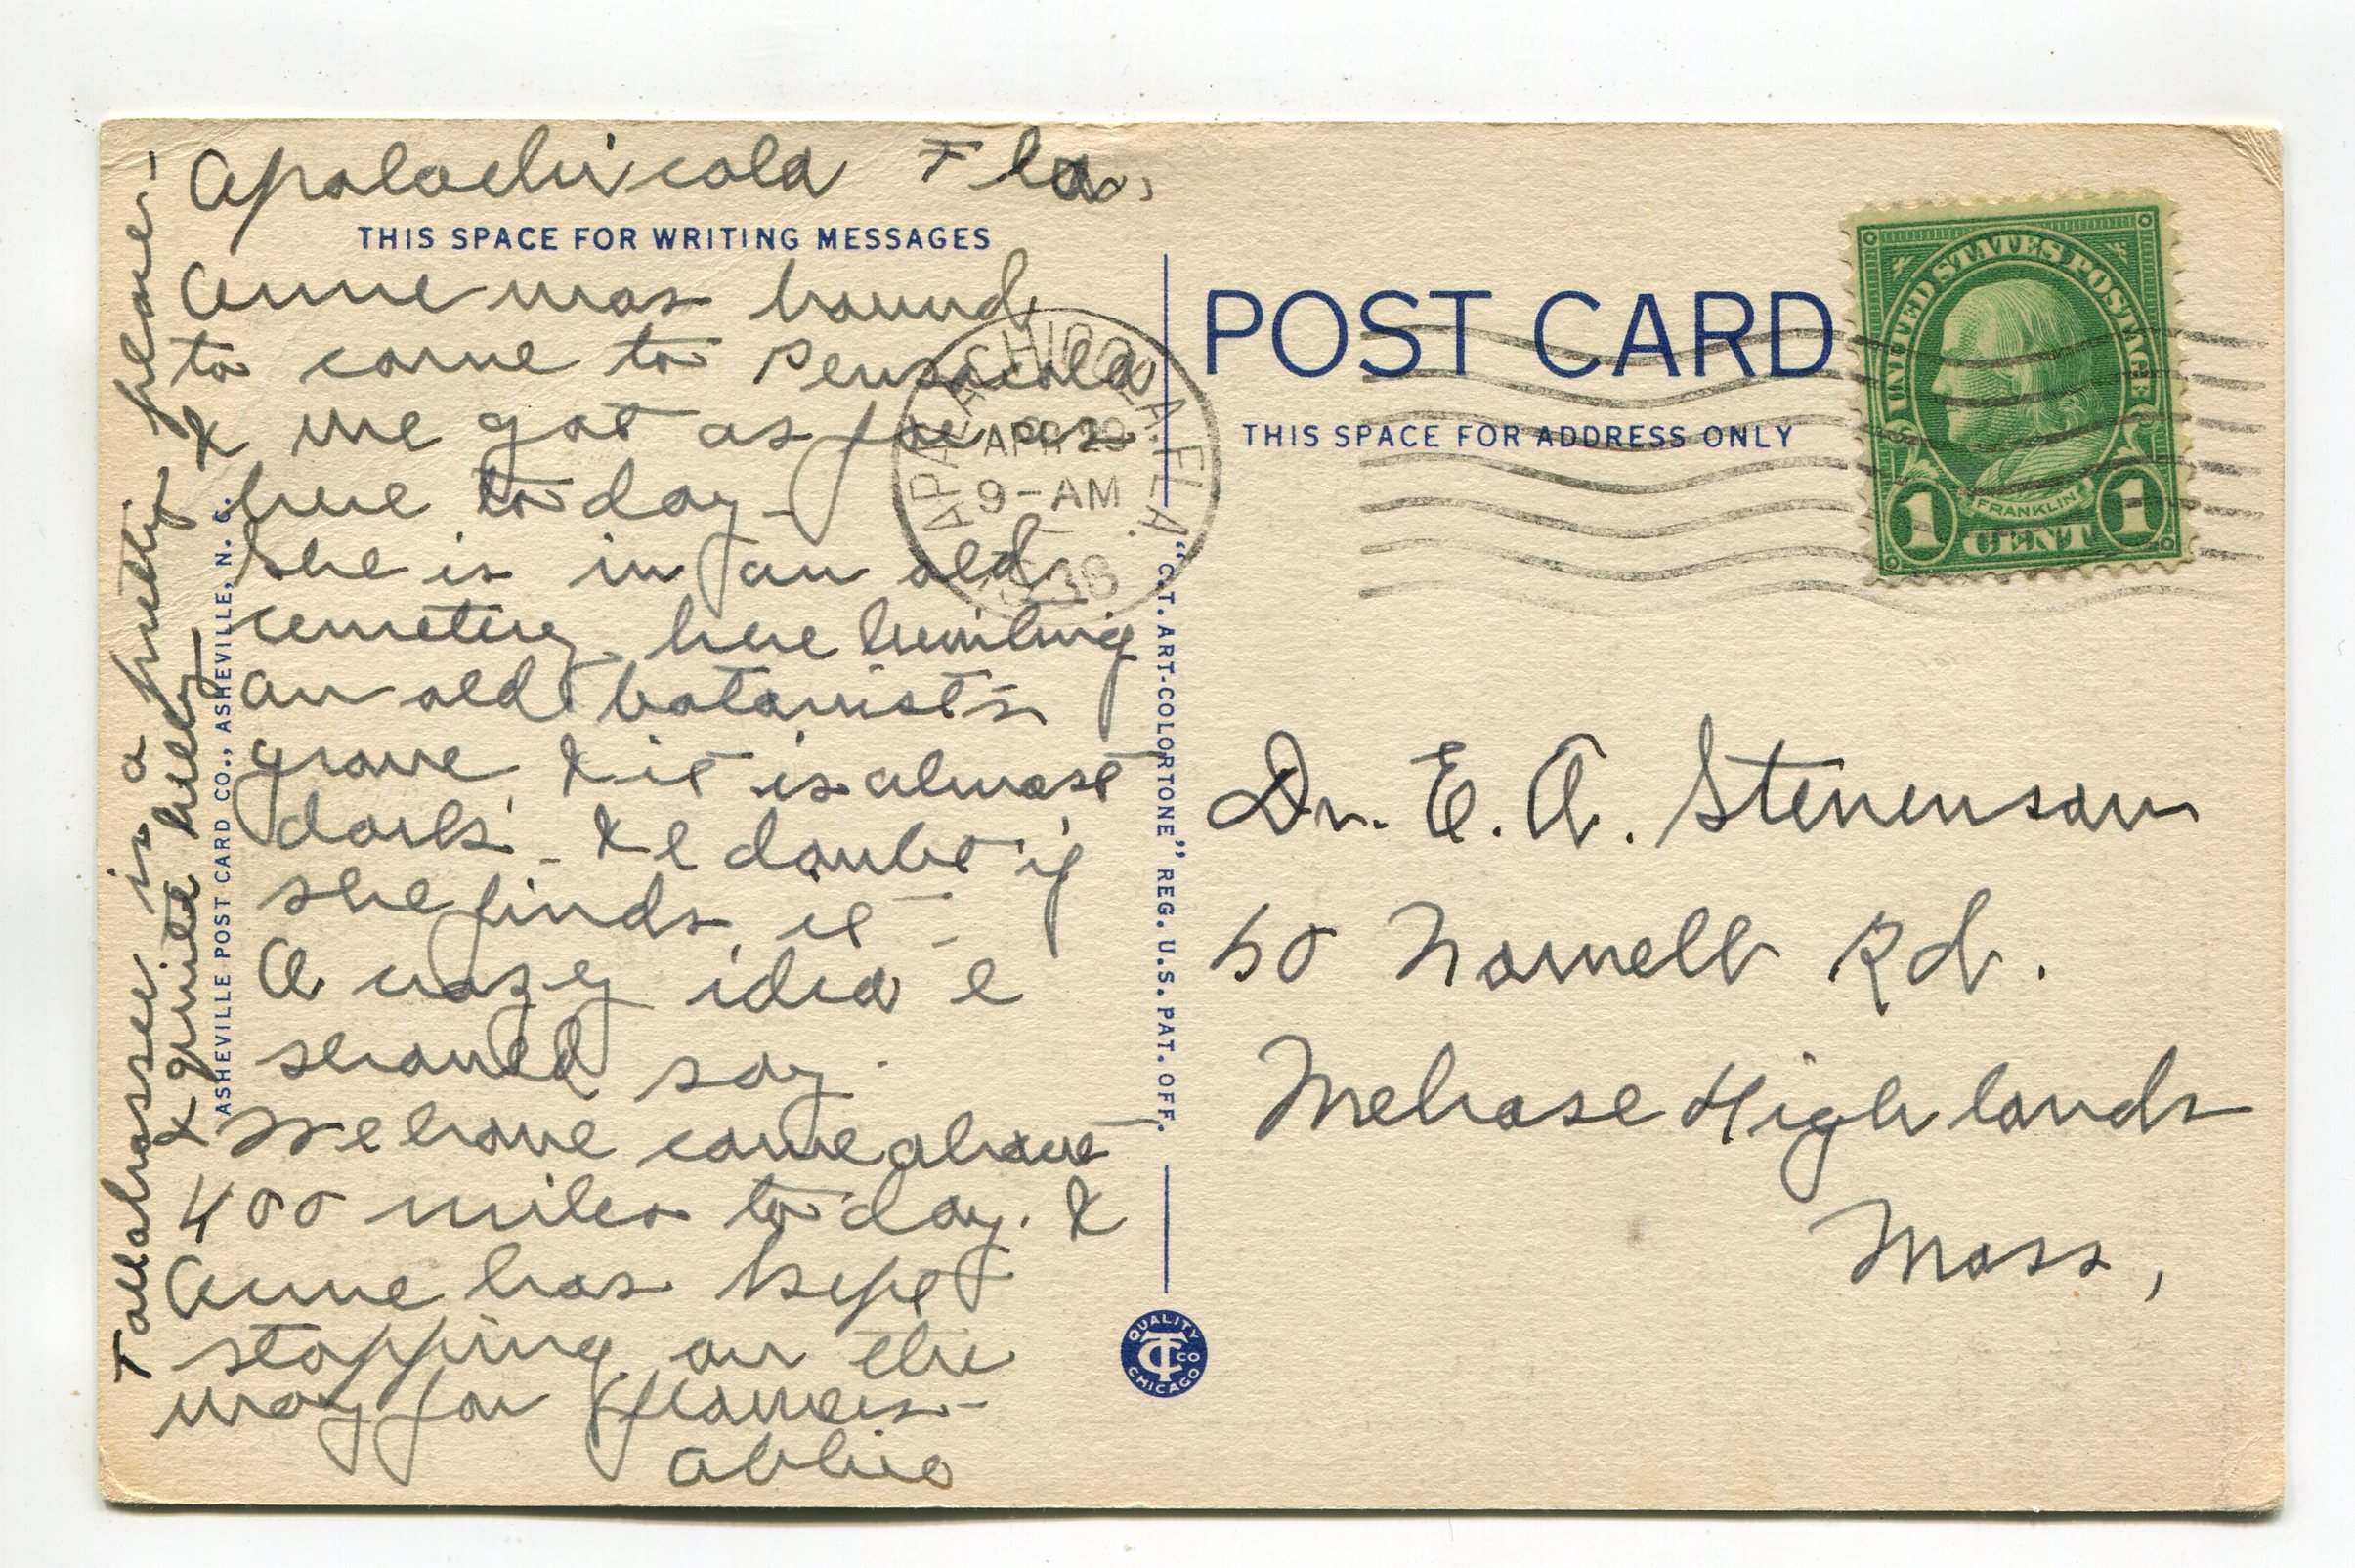 Apalachicola Fla.,
THIS SPACE FOR WRITING MESSAGES
Anne was bound
to come to Pensacola
& we got as far as
here today -
She is in an old
cemetery here hunting
an old botanists
grave, & it is almost
dark - & I doubt if
she finds it -
A crazy idea I
should say.
We have come about
400 miles today. &
Anne has kept
stopping on the
way for flowers -
Abbie
Tallahassee is a pretty place -
& quite hilly
ASHEVILLE POST CARD CO., ASHEVILLE, N. C.
APALACHICOLA. FLA.
APR 29
9-AM
1938
"C.T. ART-COLORTONE" REG. U.S. PAT. OFF.
QUALITY
CT CO
CHICAGO
POST CARD
THIS SPACE FOR ADDRESS ONLY
UNITED STATES POSTAGE
FRANKLIN
1 CENT 1
Dr. E. A. Stevenson
50 Rd.
Melrose Highlands
Mass,